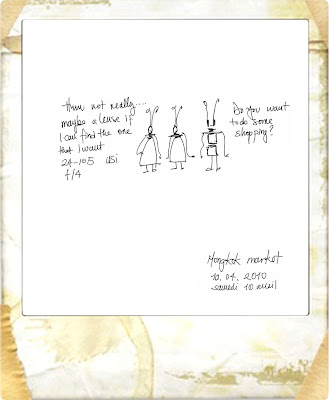 Hum not really....
maybe a lense if
I can find the one
that I want
24-105 USi
f/4
Do you want
to do some
shopping?
Mongkok market
10.04.2010
samedi 10 avril